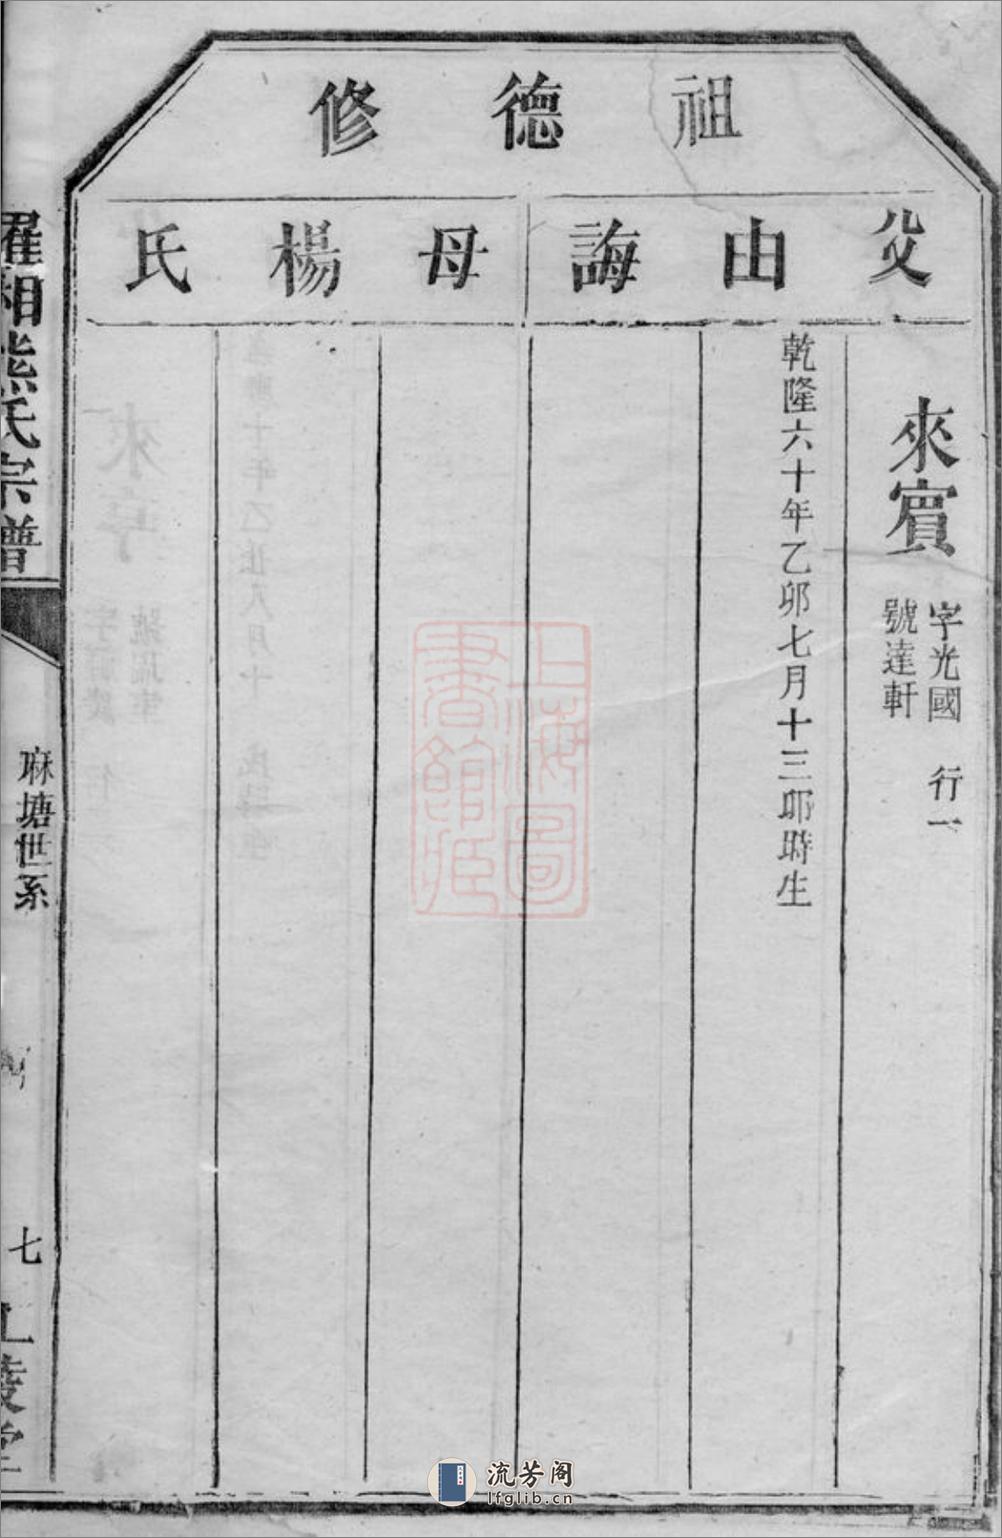 祖德修
父由誨母楊氏
來賓
字光國 行一
號達軒
乾隆六十年乙卯七月十三卯時生
羅湘熊氏宗譜
麻塘世系
七
上海圖書館藏
流芳阁
lfglib.cn